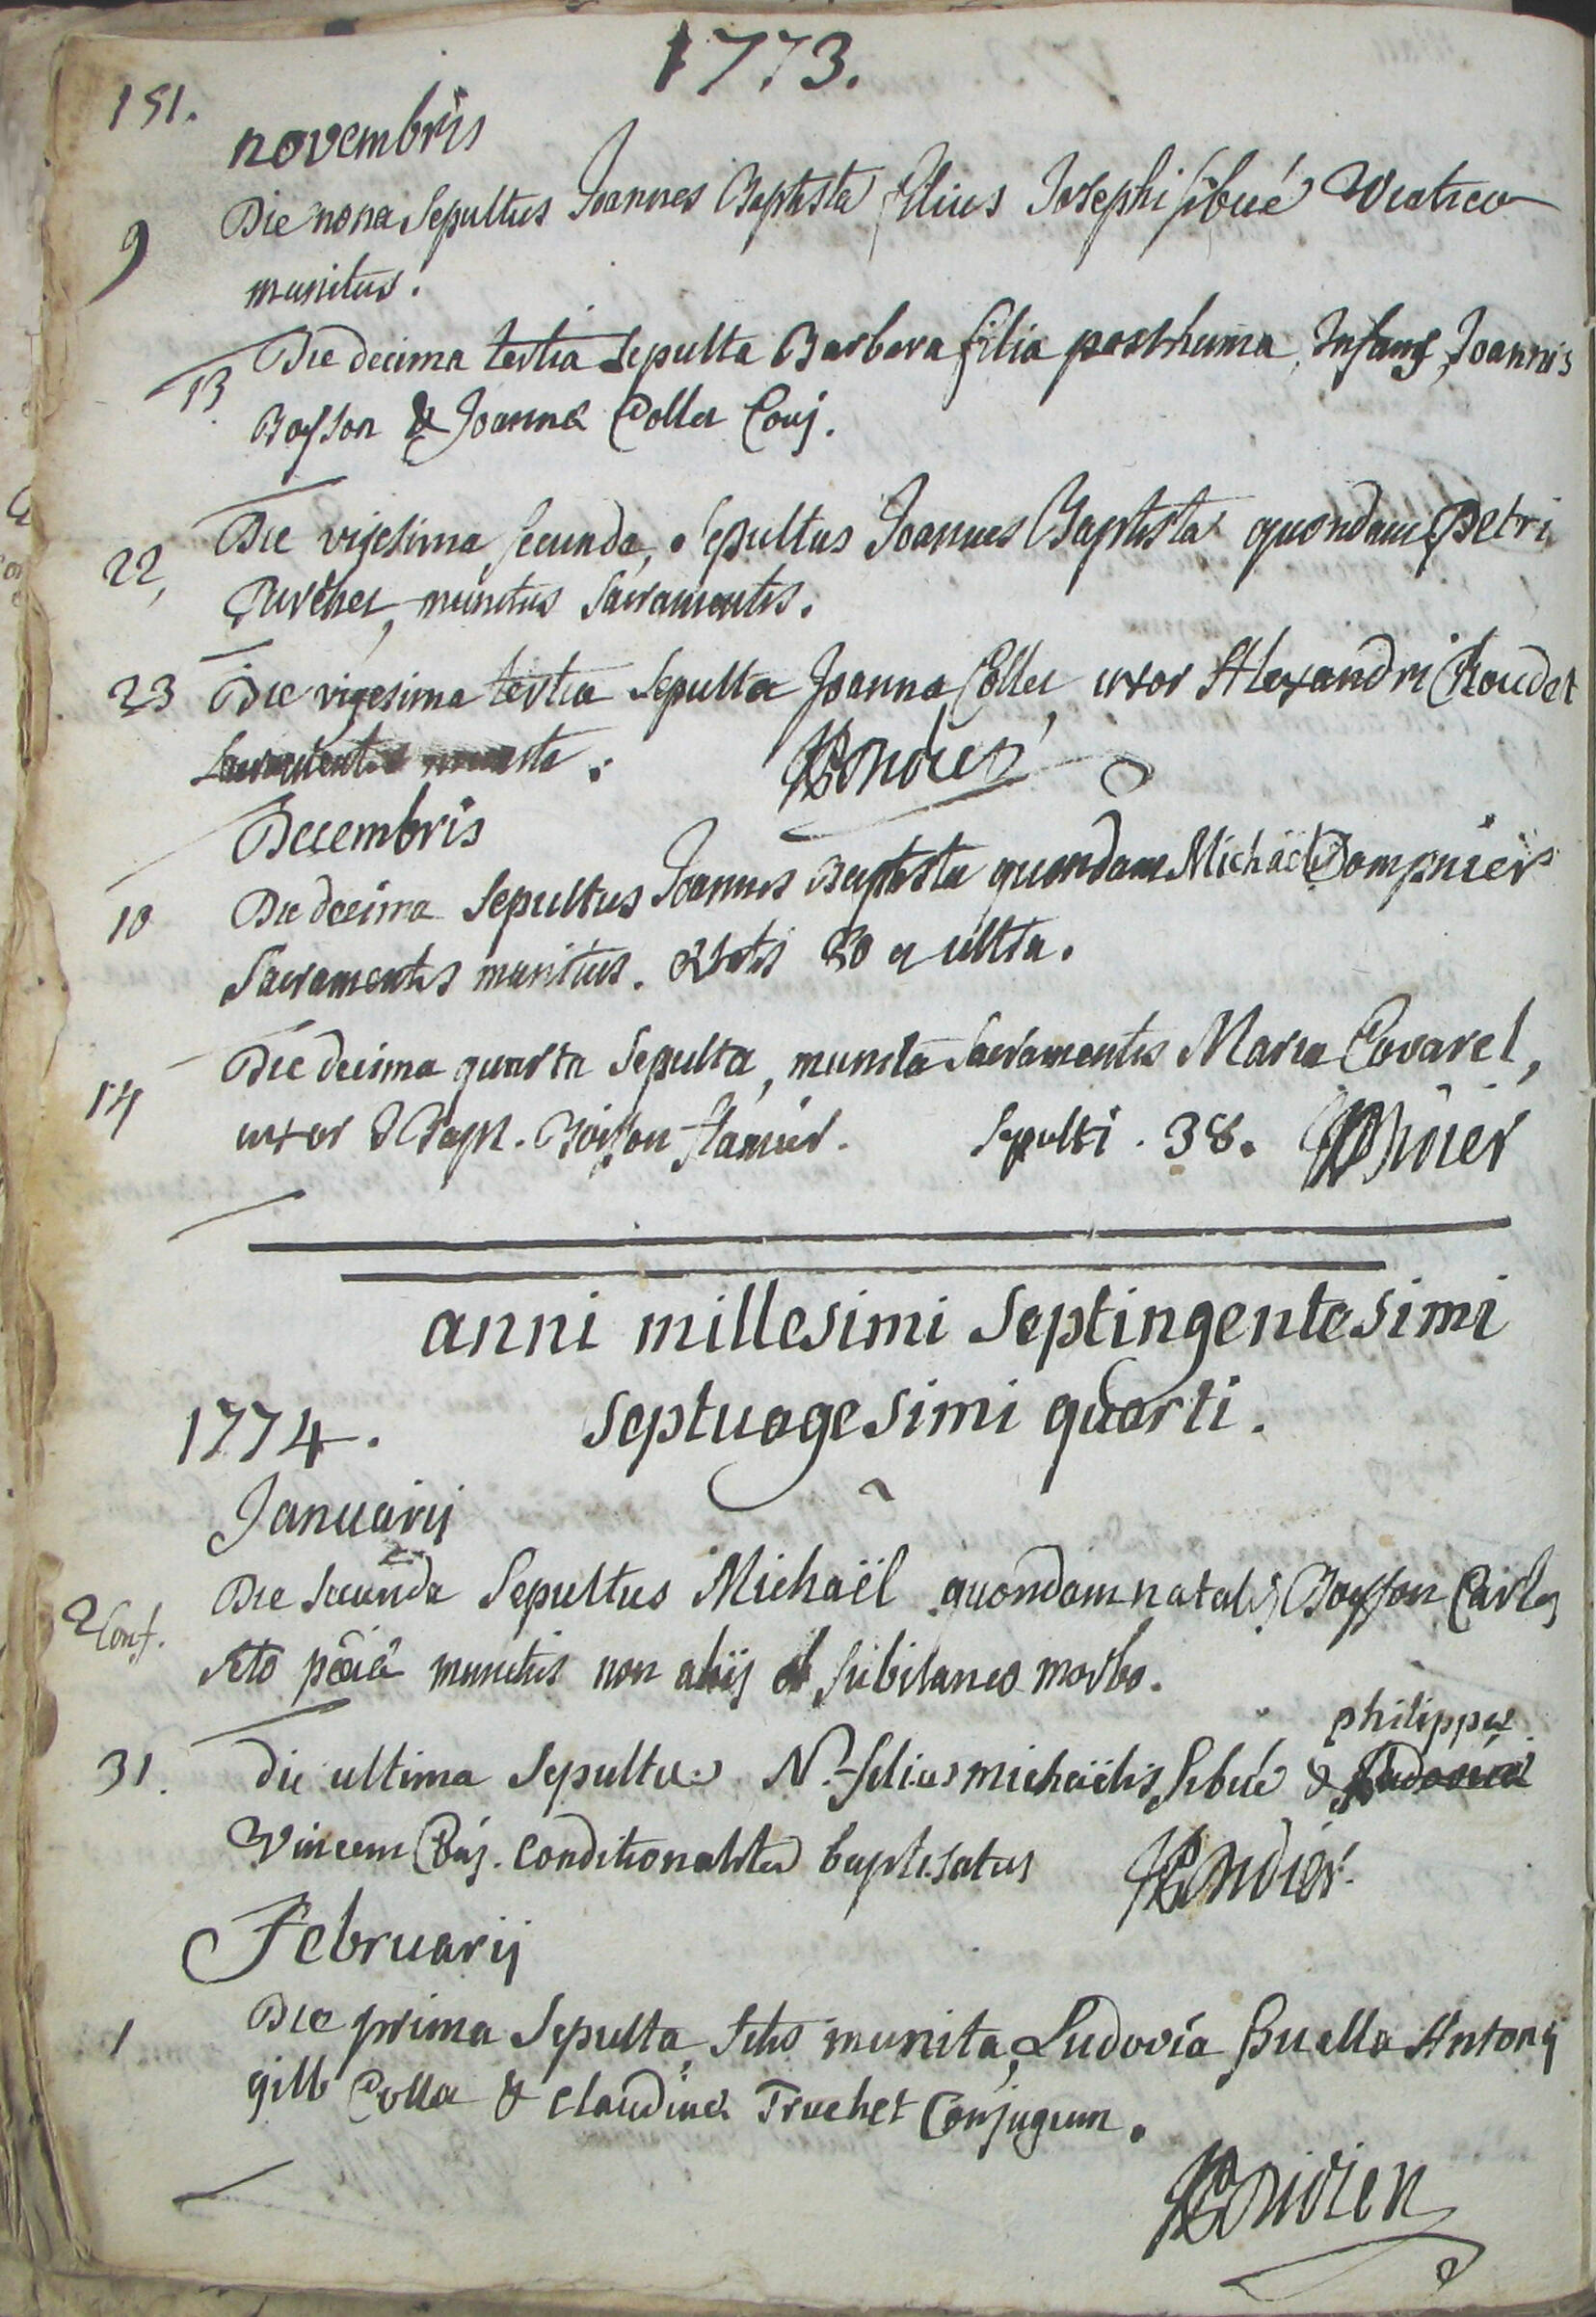 1773.
151.
novembris
9 Die nona Sepultus Joannes Baptista filius Josephi sibué Viatico
munitus.
13 Die decima tertia Sepulta Barbara filia posthuma, Infans, Joannis
Boysson & Joannæ Collet Conj.
22, Die vigesima secunda, Sepultus Joannes Baptista quondam Petri
munitus Sacramentis.
23 Die vigesima tertia Sepulta Joanna Collet, uxor Alexandri Roudet
Sacramentis munita.
Decembris
10 Die decima Sepultus Joannes Baptista quondam Michaëlis Dompnier
Sacramentis munitus. ætatis 80 et ultra.
14 Die decima quarta Sepulta, munita Sacramentis Maria Covarel,
uxor J Bapt. Boisson Sepulti. 38.
anni millesimi Septingentesimi
1774. Septuagesimi quarti.
Januarij
2 Conf. Die Secunda Sepultus Michaël quondam natalis Boysson Carles
Sto pœæ munitus non alijs subitaneo morbo.
philippæ
31. die ultima Sepultus N. filius michaëlis Sibué & Ludovicæ
Vincem Conj. Conditionaliter baptisatus
Februarij
1 Die prima Sepulta, Stis munita, Ludovica puella Antonij
gilb Collet & Claudinæ Truchet Conjugum.